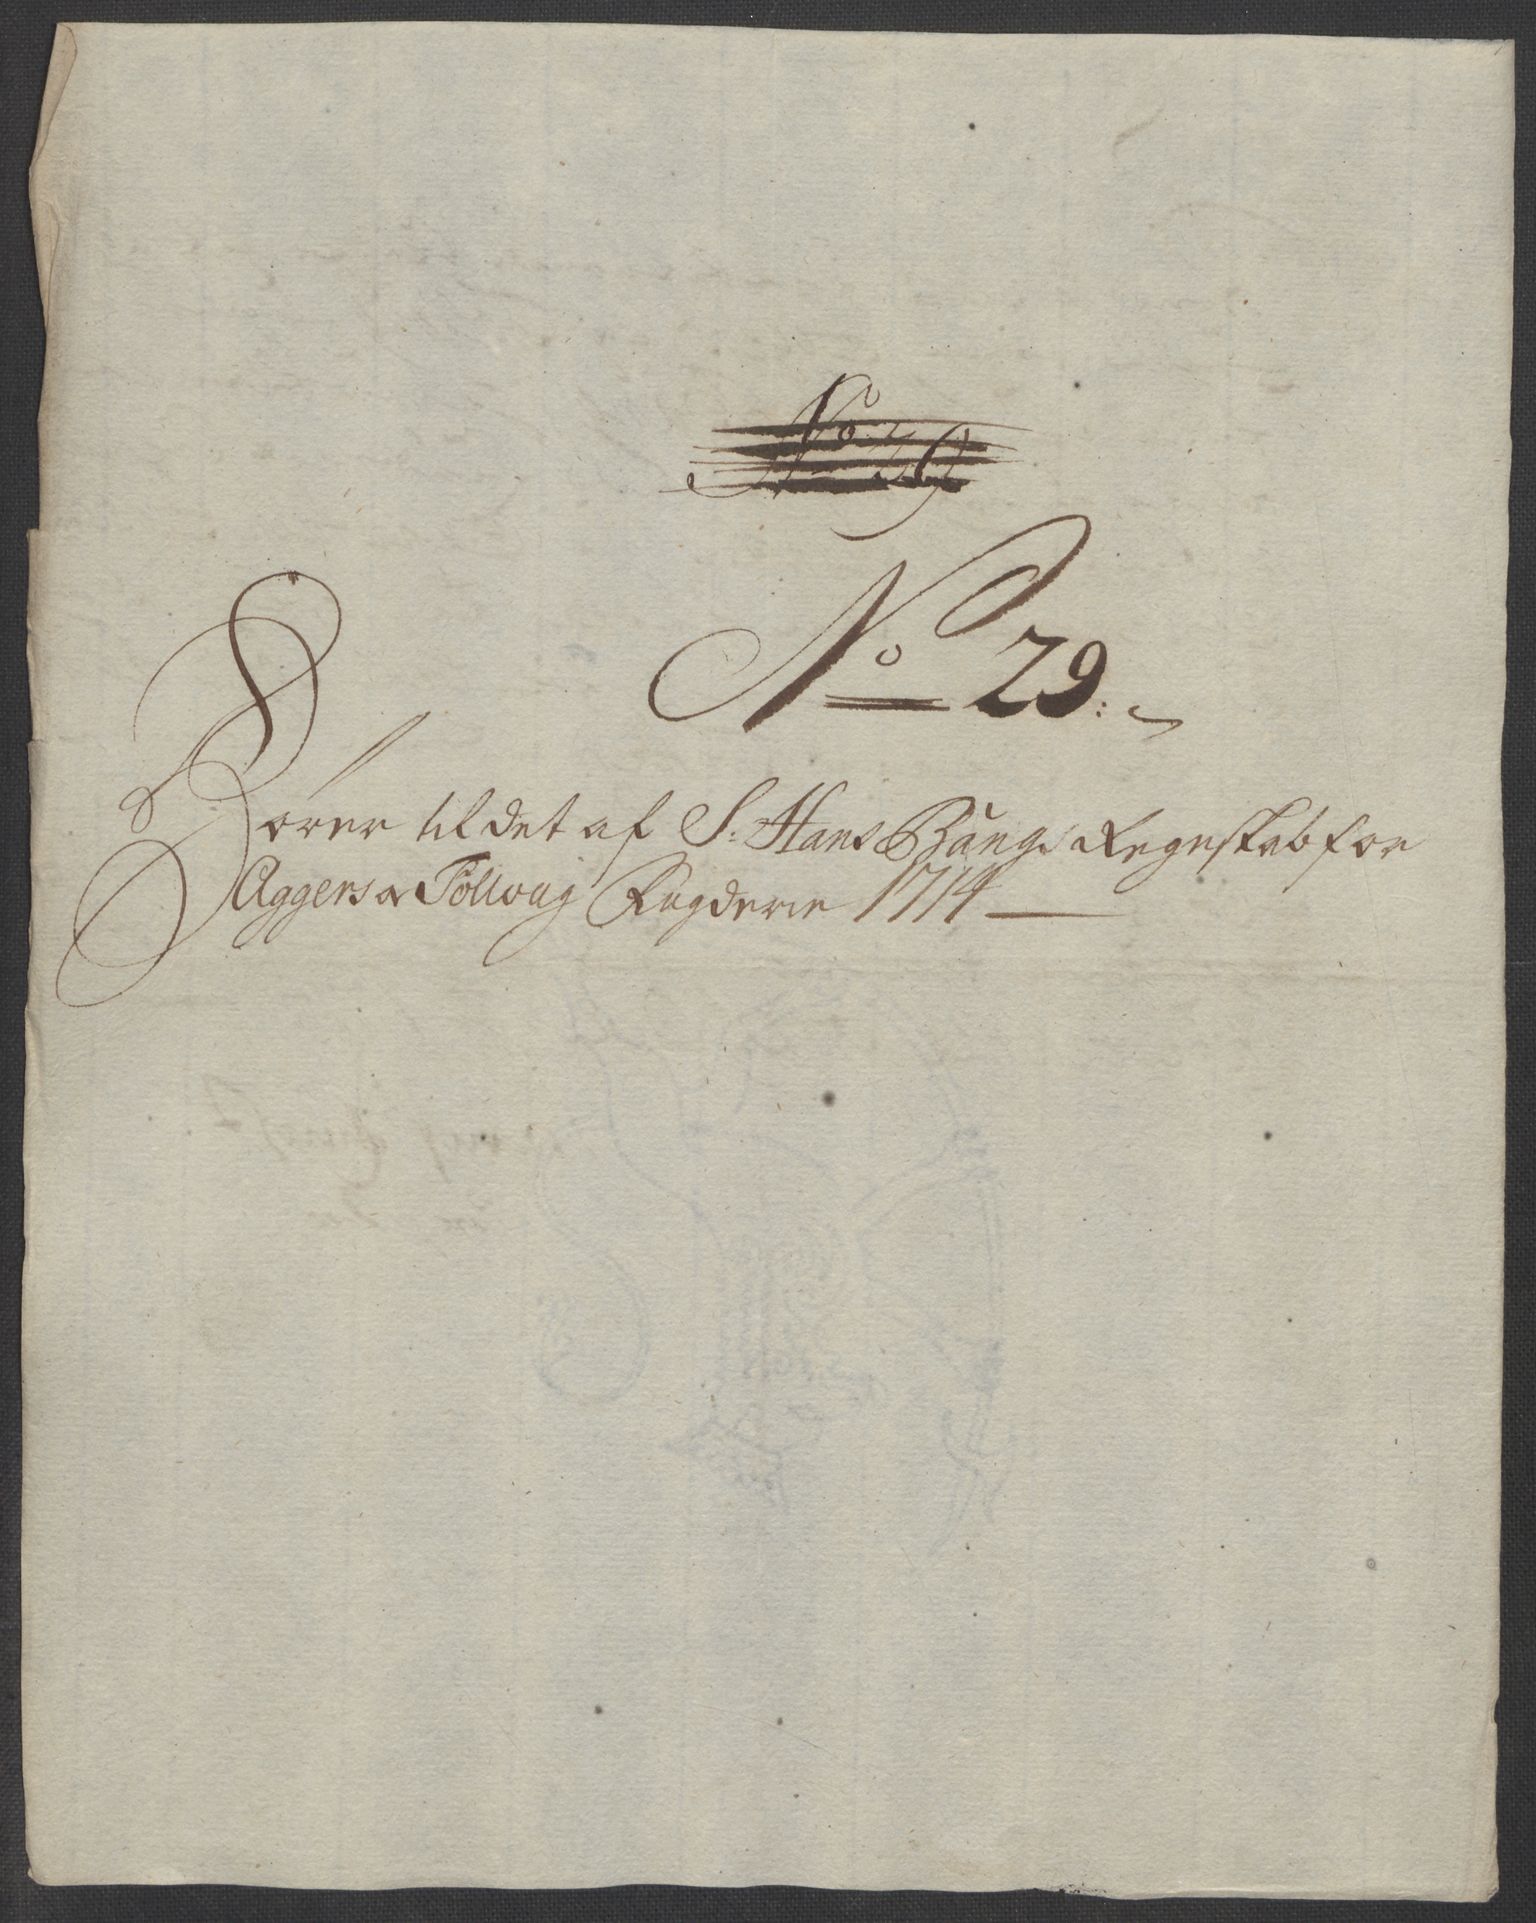 No 29:
Hører til det af S: Hans Bangs Regenskab for
Aggers oc Folloug Fogderie 1714